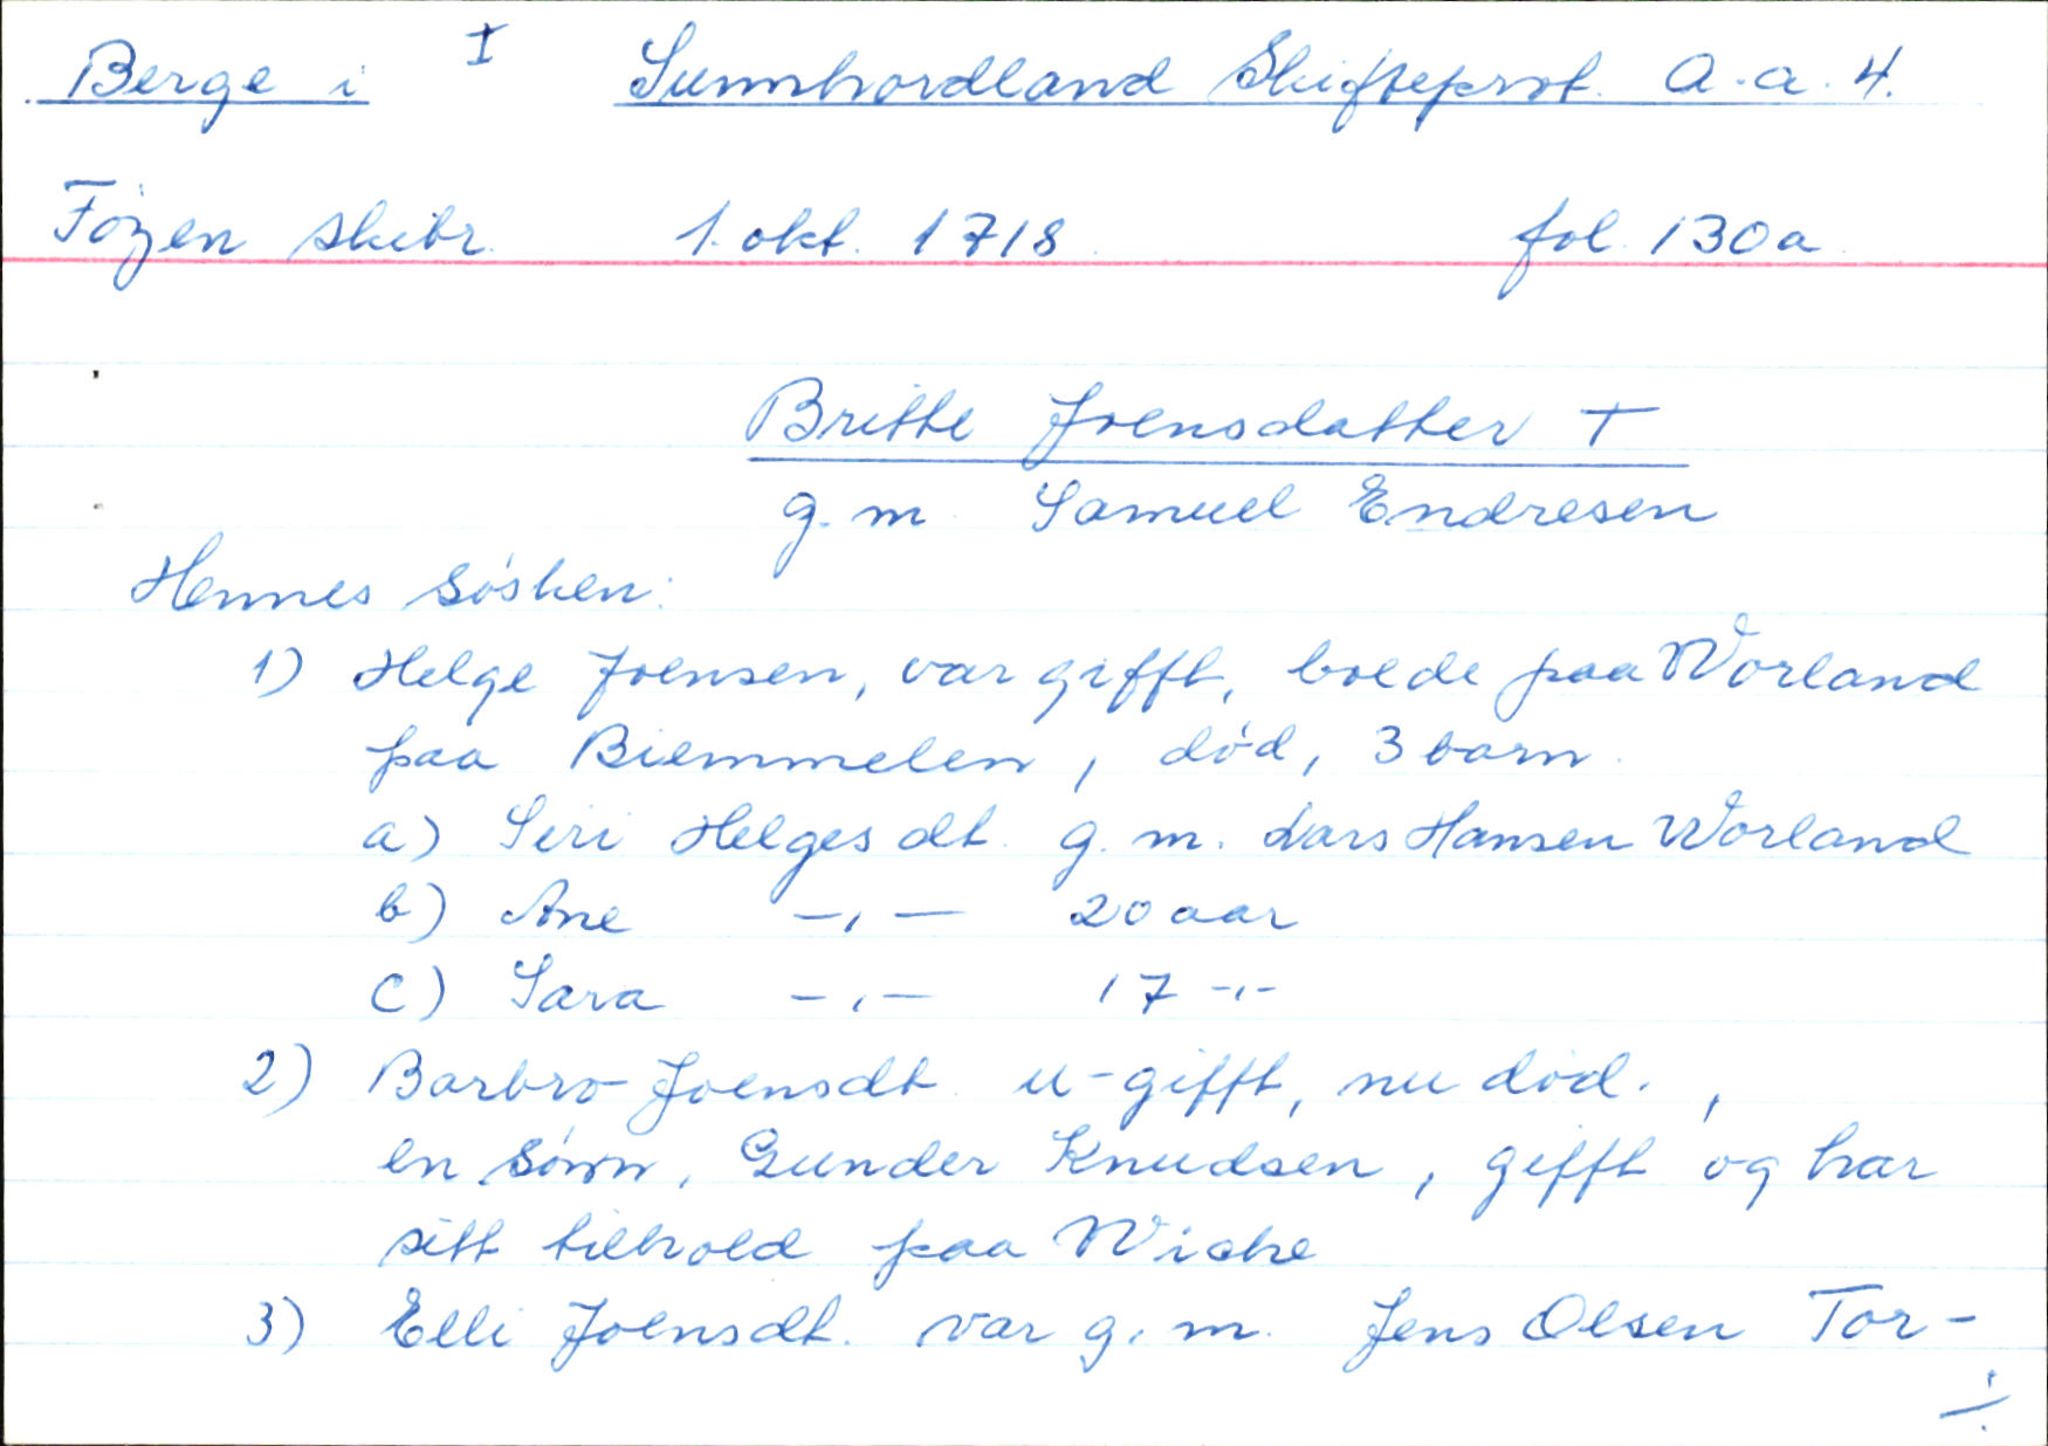 Berge i I Sunnhordland Skifteprot. A.a.4.
Föyen skibr. 1. okt. 1718 fol. 130a
Britte Joensdatter †
g.m. Samuel Endresen
Hennes søsken:
1) Helge Joensen, var gifft, boede paa Worland
paa Biemmelen, død, 3 barn.
a) Siri Helgesdt. g.m. Lars Hansen Worland
b) Ane -,- 20 aar
c) Sara -,- 17 -,-
2) Barbro Joensdt. u-gifft, nu død.,
en sønn, Gunder Knudsen, gifft og har
sitt tilhold paa Wiche
3) Elli Joensdt. var g.m. Jens Olsen Tor-